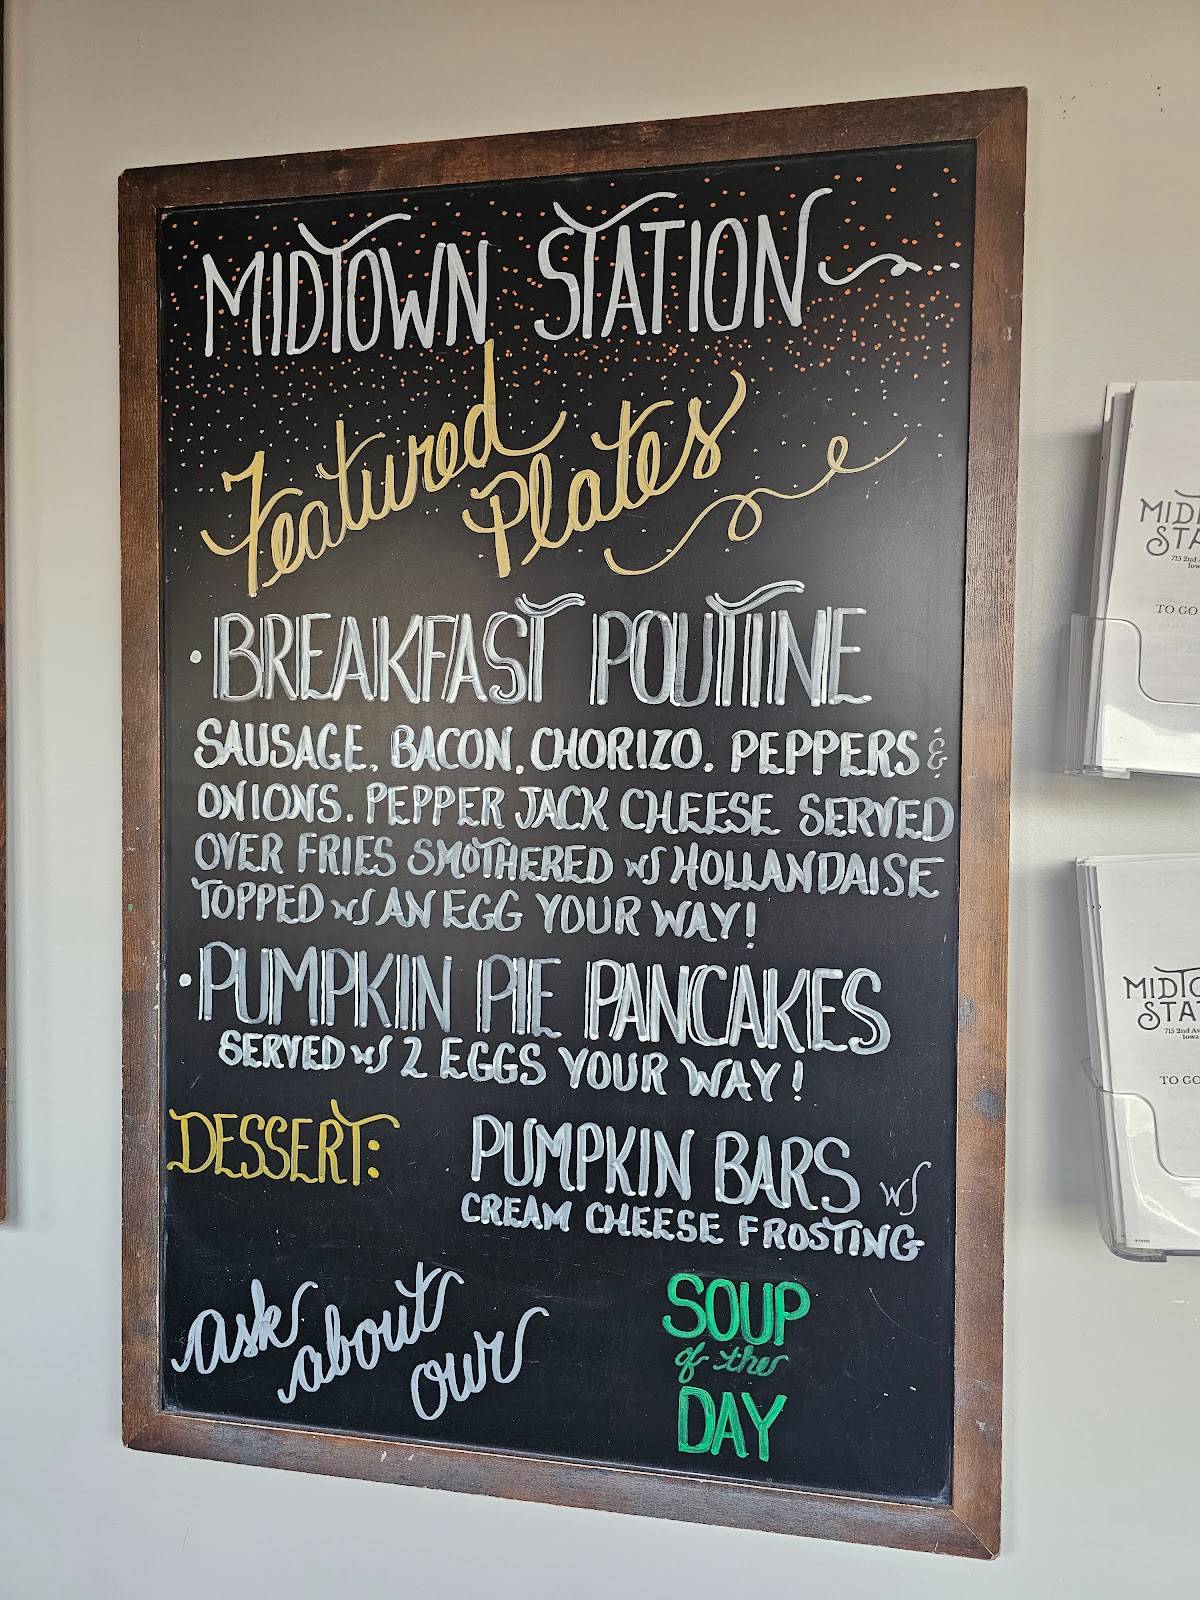 MIDTOWN STATION
Featured
Plates
• BREAKFAST POUTINE
SAUSAGE, BACON, CHORIZO, PEPPERS &
ONIONS, PEPPER JACK CHEESE SERVED
OVER FRIES SMOTHERED w/ HOLLANDAISE
TOPPED w/ AN EGG YOUR WAY!
• PUMPKIN PIE PANCAKES
SERVED w/ 2 EGGS YOUR WAY!
DESSERT: PUMPKIN BARS w/
CREAM CHEESE FROSTING
ask
about
our
SOUP
of the
DAY
MID
STA
715 2nd
Iow
TO GO
MIDTO
STA
715 2nd Av
Iowa
TO GO